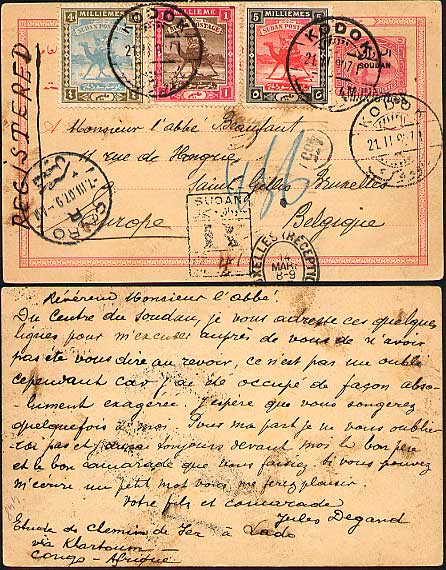 4 MILLIEMES 4
SUDAN POSTAGE
1 MILLIEME 1
SUDAN POSTAGE
5 MILLIEMES 5
SUDAN POSTAGE
KODOK
21.II.07
KODOK
21.II.07
SOUDAN
KODOK
21.II.07
REGISTERED
A Monsieur l'abbé Beaufant
11 rue de Hongrie
Saint Gilles Bruxelles
Europe Belgique
CAIRO
R
1.III.07
SUDAN
BRUXELLES (RECEPTION)
MARS
8-9
Révérend Monsieur l'abbé!
Du centre du Soudan, je vous adresse ces quelques
lignes pour m'excuser auprès de vous de n'avoir
pas été vous dire au revoir, ce n'est pas un oubli
cependant car j'ai été occupé de façon abso-
lument exagérée. J'espère que vous songerez
quelquefois à moi. Pour ma part je ne vous oublie-
rai pas et j'aurai toujours devant moi le bon père
et le bon camarade que vous faisiez. Si vous pouvez
m'écrire un petit mot vous me ferez plaisir
Votre fils et camarade
Jules Degand
Etude de Chemin de Fer à Lado
via Khartoum
Congo-Afrique